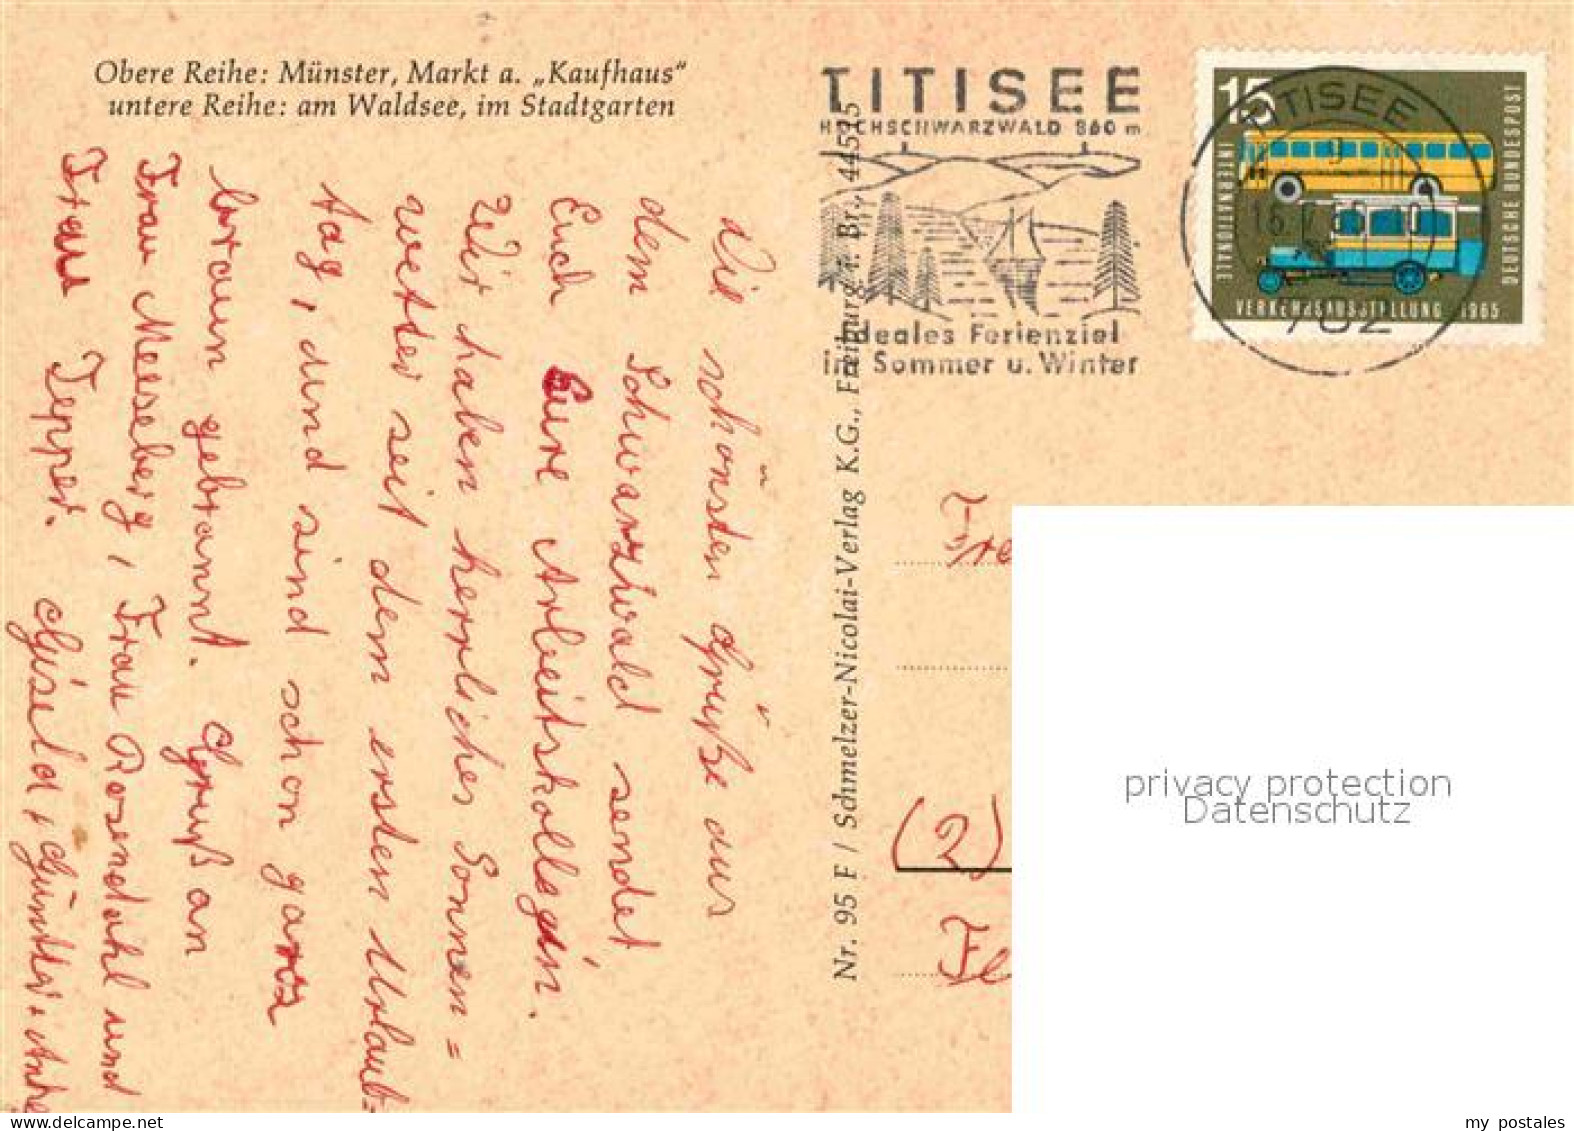 Obere Reihe: Münster, Markt a. „Kaufhaus“
untere Reihe: am Waldsee, im Stadtgarten
Die schönsten Grüße aus
dem Schwarzwald sendet
Euch Eure Arbeitskollegin.
Wir haben herrliches Sonnen=
wetter seit dem ersten Urlaub=
tag, und sind schon ganz
braun gebrannt. Gruß an
Frau Meeseberg, Frau Rosendahl und
Frau Tepper.
Gisela, Günther, Andre
Nr. 95 F / Schmelzer-Nicolai-Verlag K.G., Freiburg i. Br., 44515
TITISEE
HOCHSCHWARZWALD 860 m
Ideales Ferienziel
im Sommer u. Winter
TITISEE
782
15
INTERNATIONALE
VERKEHRSAUSSTELLUNG 1965
DEUTSCHE BUNDESPOST
(2)
privacy protection
Datenschutz
my postales